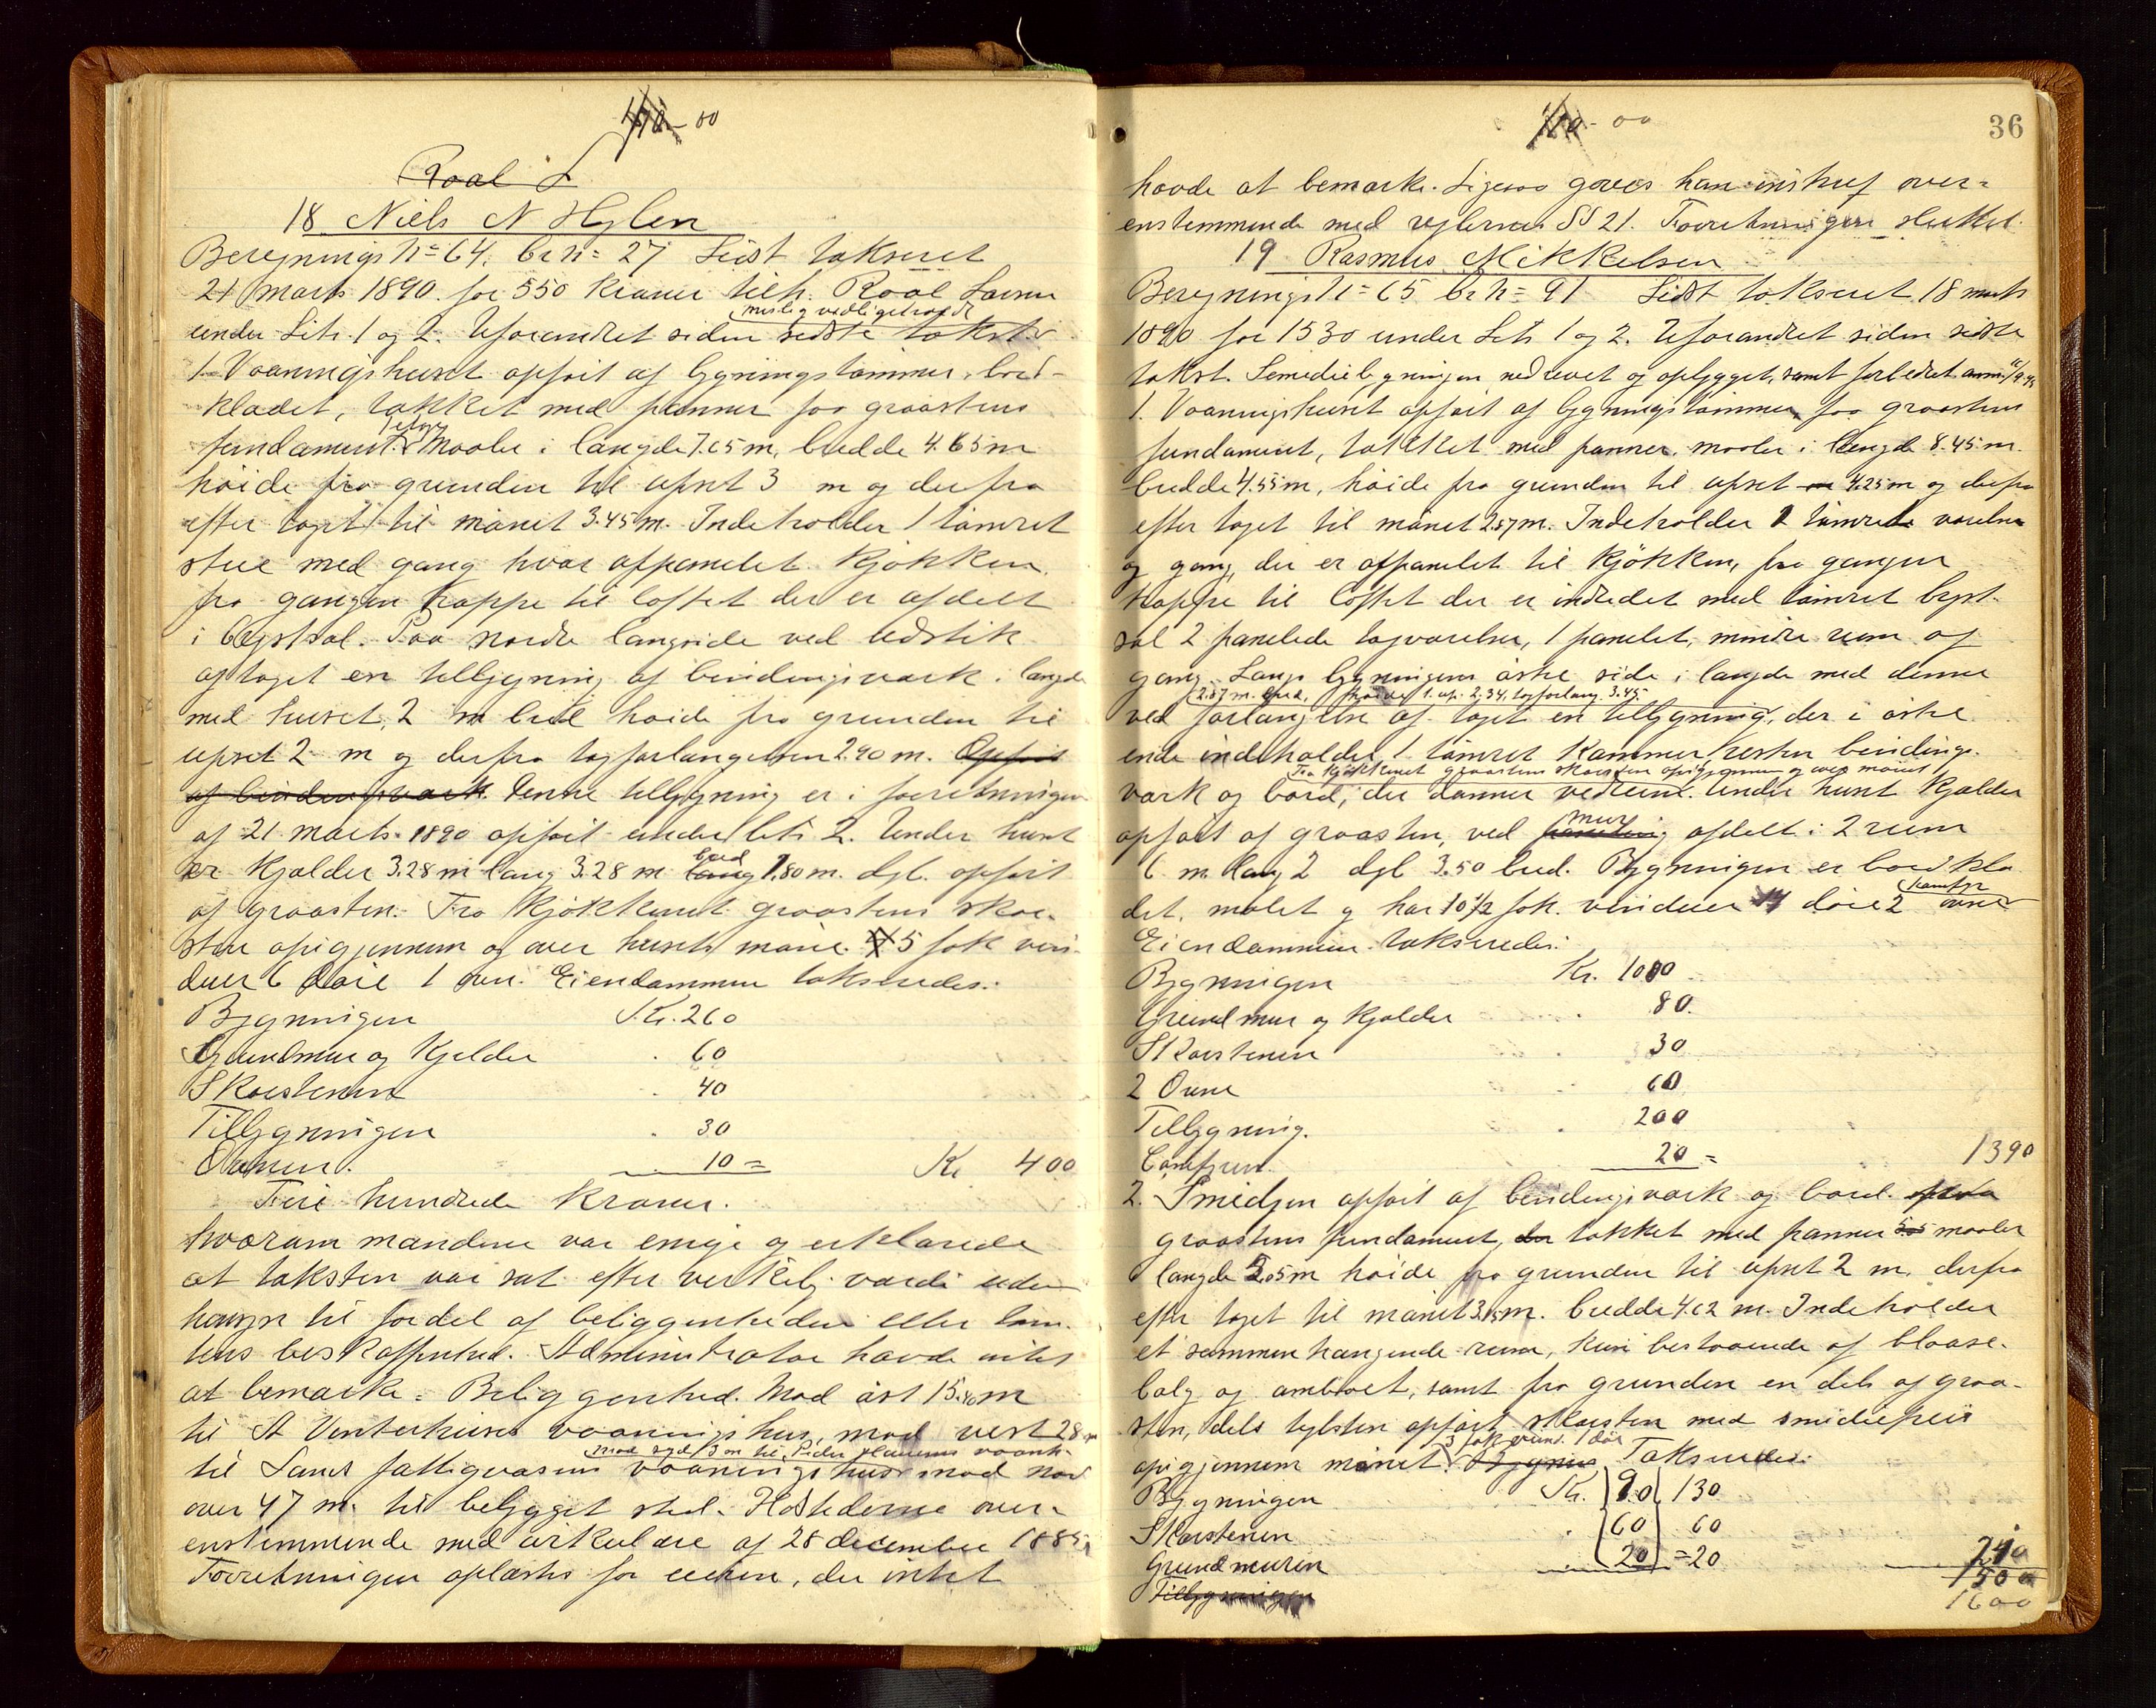 00
Roal L
18 Niels N Hylen
Beregnings N= 64. br n= 27 Sidst takseret
21 Marts 1890 for 550 kroner tilh. Roal Larsen
mislig vedligeholdt
under Litr. 1 og 2. Uforandret siden sidste takst.
1 Vaaningshuset opført af bygningstømmer, bord-
klædet, tækket med panner paa graastens
fundament. Maaler i længde 7.65 m, bredde 4.65 m
høide fra grunden til upset 3 m og derfra
efter taget til mønet 3.45 m. Indeholder 1 tømret
stue med gang hvor afpanelet kjøkken.
fra gangen trappe til loftet der er afdelt
i brystsal. Paa nordre langside ved udstik
af taget en tilbygning af bindingsværk i længde
med huset, 2 m bred høide fra grunden til
upset 2 m og derfra tagforlængelsen 2.90 m. Opført
af bindingsværk. Denne tilbygning er i forretningen
af 21 marts 1890 opført under litr 2. Under huset
er kjælder 3.28 m lang 3.28 m bred 1.80 m. dyb. opført
af graasten. Fra kjøkkenet graastens skor-
sten opigjennem og over husets møne. 5 fok vin-
duer 6 døre 1 ovn. Eiendommen takseredes:
Bygningen Kr. 260
Grundmur og Kjelder 60
Skorstenen 40
Tilbygningen 30
Ovnen. 10 = Kr 400
Fire hundrede Kroner.
hvorom mændene var enige og erklærede
at taksten var sat efter virkelig værdi uden
hensyn til fordel af beliggenheden eller tom-
tens beskaffenhed. Administrator havde intet
at bemærke. Beliggenhed. Mod øst 15.40 m
til A Vinterhuses vaaningshus, mod vest 28 m
mod syd 13 m til Peder vaanh.
til Lunds fattigvæsens vaaningshus mod nord
over 47 m. til bebygget sted. Ildstederne over-
enstemmende med cirkulære af 28 december 1885.
Forretningen oplæstes for eieren, der intet
00
36
havde at bemærke. Ligesaa gaves han inskrif over-
enstemmende med reglernes §§ 21. Forretningen sluttet.
19 Rasmus Mikkelsen
Beregnings N= 65 br n= 91 Sidst takseret 18 marts
1890 for 1530 under Litr 1 og 2. Uforandret siden sidste
takst. Smediebygningen nedrevet og opbygget, samt forbedret
1. Vaaningshuset opført af bygningstømmer, paa graastens
fundament, tækket med panner. maaler i længde 8.45 m.
bredde 4.55 m, høide fra grunden til upset 4.25 m og derfra
efter taget til mønet 2.57 m. Indeholder 2 tømrede værelser
og gang, der er afpanelet til kjøkken, fra gangen
trappe til loftet der er indredet med tømret bryst-
sal 2 panelede tagværelser, 1 panelet, mindre rum og
gang. Langs bygningens østre side i længde med denne
2.87 m. bred, høide t. up. 2,34, tagforlæng. 3.45
ved forlængelse af taget en tilbygning, der i østre
ende indeholder 1 tømret Kammer, resten bindings-
Fra kjøkkenet graastens skorsten opigjennem og over mønet
værk og bord, der danner vedrum. Under huset kjælder
opført af graasten, ved mur afdelt i 2 rum
6 m lang 2 dyb 3.50 bred. Bygningen er bordklæ-
det, malet og har 10 1/2 fok. vinduer 14 døre 2 ovne
komfyr
Eiendommen takseredes:
Bygningen Kr. 1000
Grundmur og Kjælder 80.
Skorstenen 30
2 Ovne 60
Tilbygning. 200
Comfyren. 20 = 1390
2. Smedjen opført af bindingsværk og bord.
graastens fundament, tækket med panner maaler
længde 5.05 m høide fra grunden til upset 2 m, derfra
efter taget til mønet 3.15 m. bredde 4.62 m. Indeholder
et sammenhængende rum, kun bestaaende af blaase-
bælg og ambolt, samt fra grunden en dels af graa-
sten, dels teglsten opført skorsten med smediepeis
3 fok vind. 1 dør
opigjennem mønet. Takseredes:
Bygningen Kr. 90 130
Skorstenen 60 60
Grundmuren 20 = 20 210
Tilbygningen 1500
1600